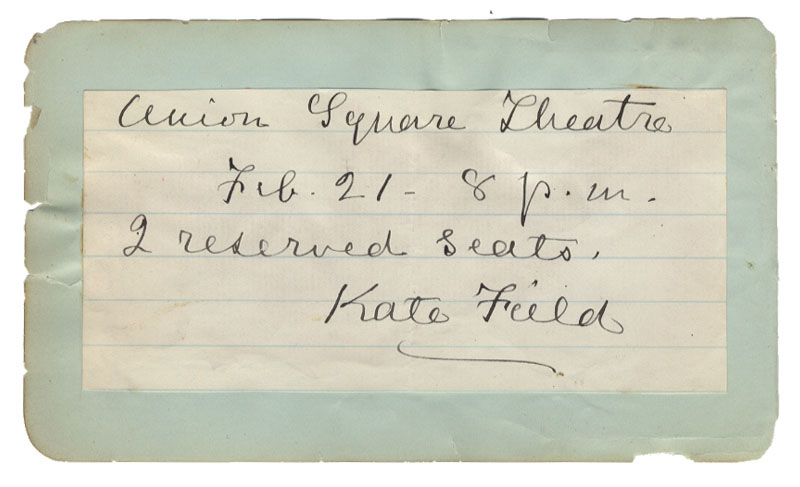 Union Square Theatre
Feb. 21 - 8 p.m.
2 reserved seats.
Kate Field